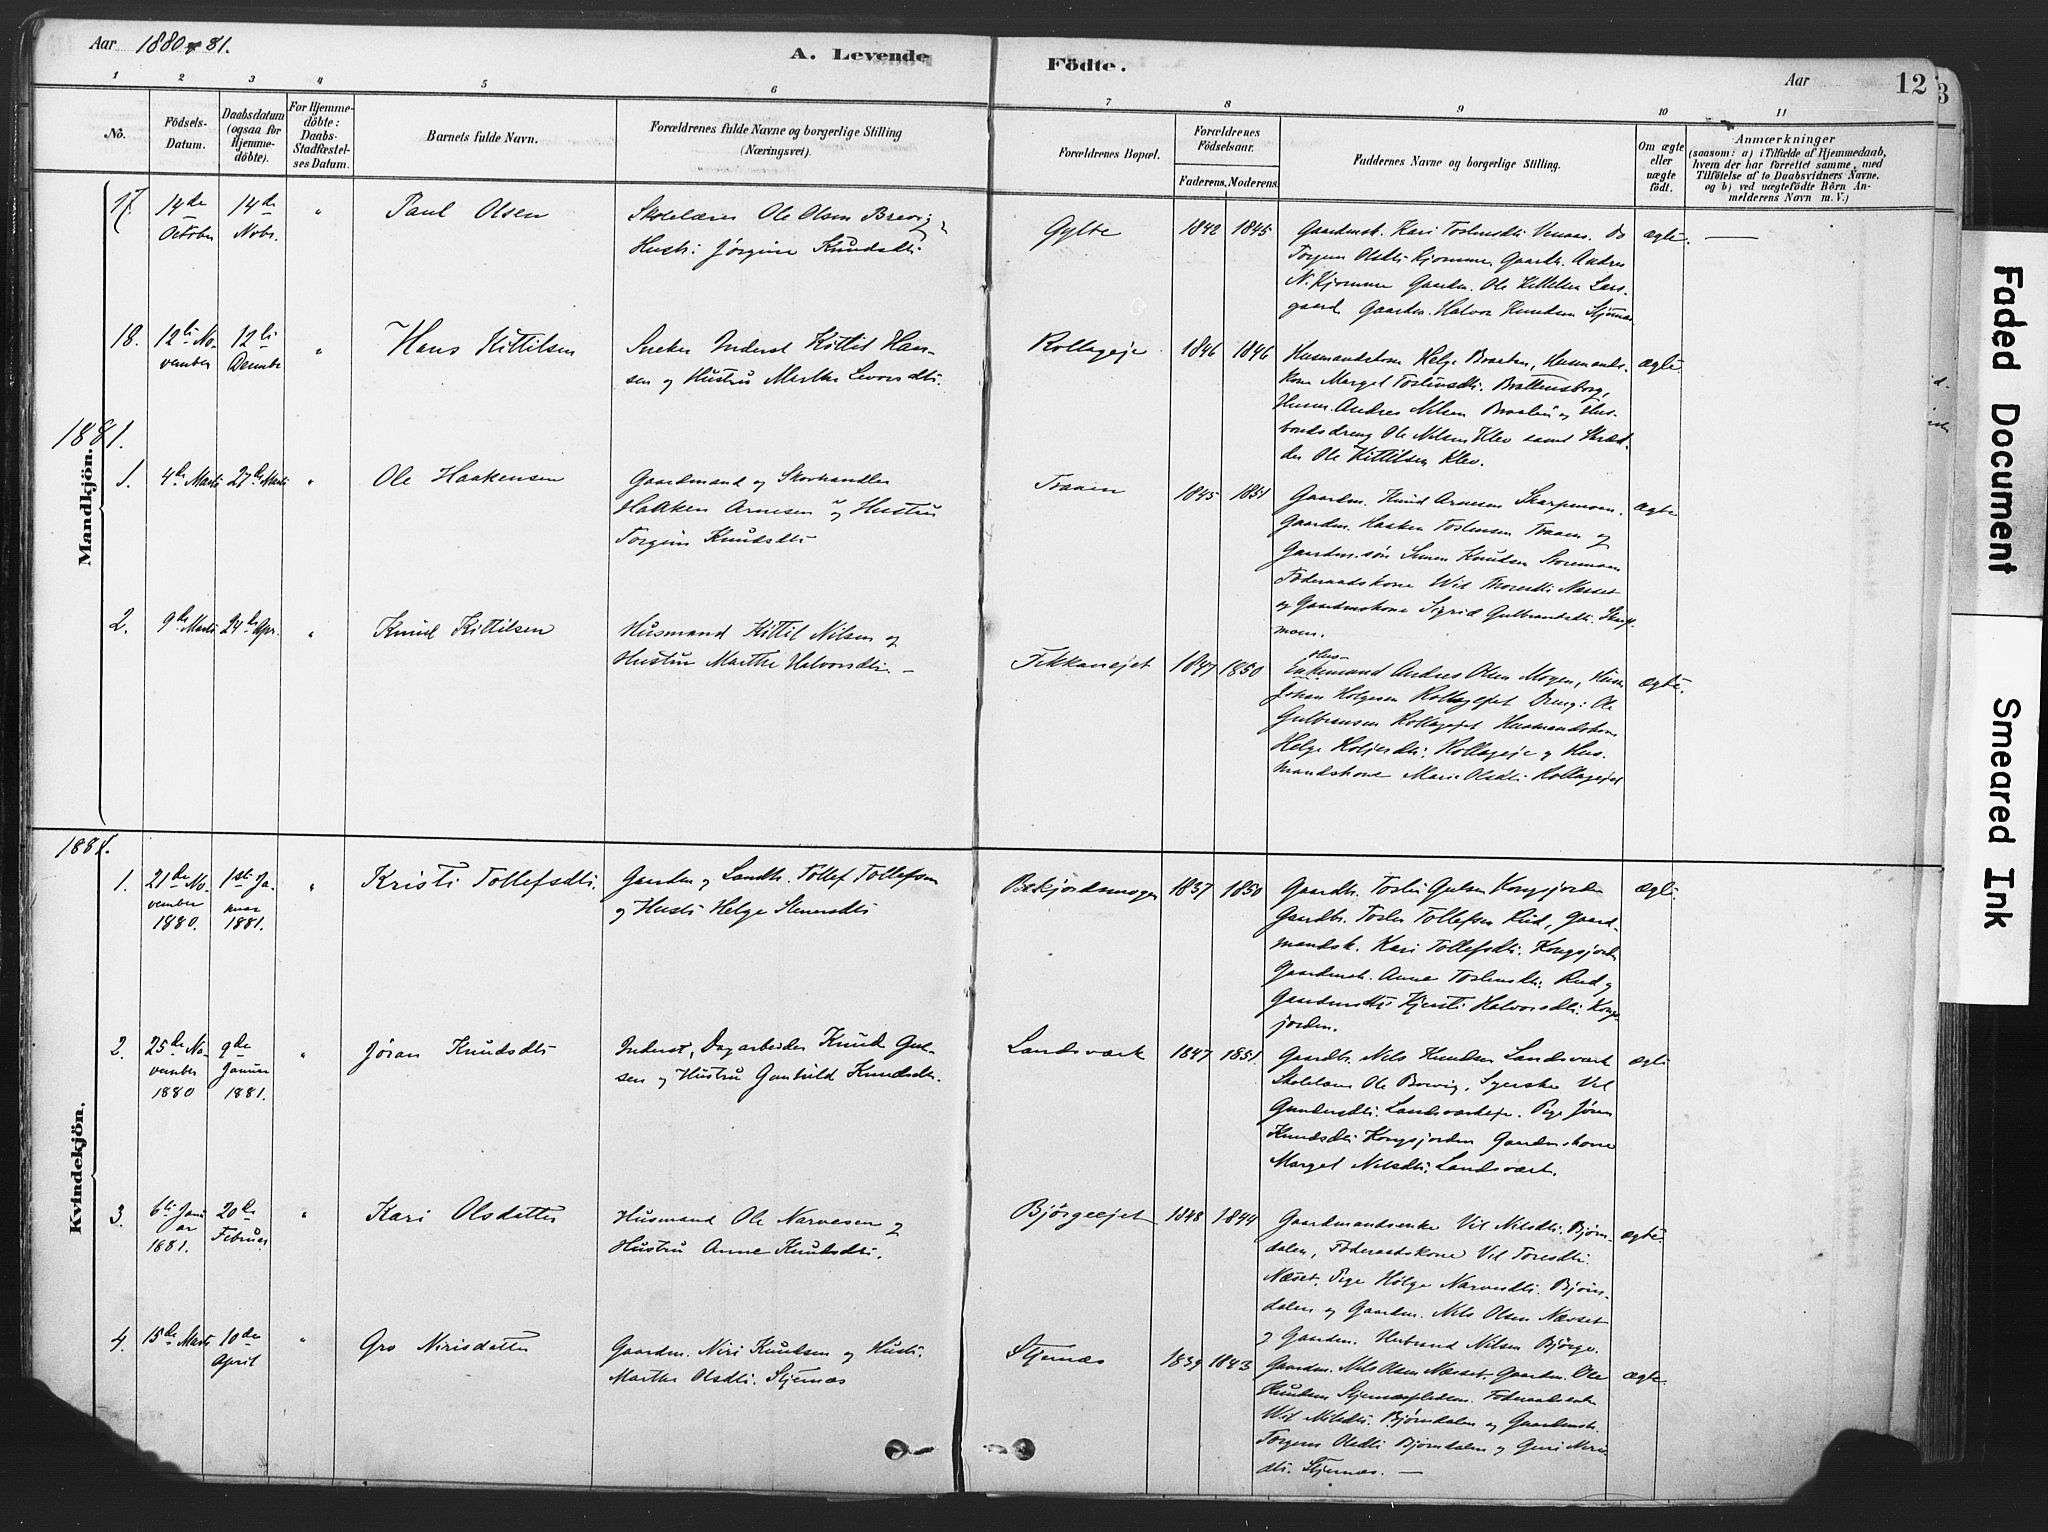 Aar 1880 & 81.
A. Levende Födte.
Aar
12
3
1 2 3 4 5 6 7 8 9 10 11
No.
Födsels-
Datum.
Daabsdatum
(ogsaa for
Hjemme-
döbte).
For Hjemme-
döbte:
Daabs-
Stadfæstel-
ses Datum.
Barnets fulde Navn.
Forældrenes fulde Navne og borgerlige Stilling
(Næringsvei).
Forældrenes Bopæl.
Forældrenes
Födselsaar.
Faderens. Moderens.
Faddernes Navne og borgerlige Stilling.
Om ægte
eller
uægte
födt.
Anmærkninger
(saasom: a) i Tilfælde af Hjemmedaab,
hvem der har forrettet samme, med
Tilföielse af to Daabsvidners Navne.
og b) ved uægtefödte Börn An-
melderens Navn m. V.)
Mandkjön.
17. 14de October 14de Novbr. " Paul Olsen
Skolelærer Ole Olsen Brevig
Hustr: Jørgine Knudsdtr:
Gylte 1842 1845
Gaardmsk. Kari Torstensdtr: Do
Torgun Olsdtr: Kjomme, Gaardbr. Andres
N. Kjomme Gaardm. Ole Kittilsen Lars-
gaard, Gaardm. Halvor Knudsen Stjernæs
ægte. —
18. 12te November 12te December " Hans Kittilsen
Snekker Inderst Kittil Han-
sen og Hustru Marthe Levorsdtr:
Rollageje 1846 1846
Husmandskone Helge Braaten, Husmands-
kone Marget Torstensdtr:
Husm. Andres Nilsen Braaten og
Ole Nilsen Klev samt Skræd-
der Ole Kittilsen Klev.
ægte.
1881.
1. 4de Marts 27de Marts " Ole Haakensen
Gaardmand og Skovhandler
Haaken Arnesen og Hustru
Torgun Knudsdtr:
Traaen 1845 1851
Gaardm. Knud Arnesen Skarpmoen.
Gaardm. Haaken Torstensen Traaen og
Gaardm. søn Simen Knudsen
Føderaadskone Næset
og Gaardmskone Sigrid Gulbrandsdtr: Skarp-
moen.
ægte
2. 9de Marts 24de Apr. " Knud Kittilsen
Husmand Kittil Nilsen og
Hustru Marthe Halvorsdtr: —
1847 1850
Hus-
Enkemand Andres Olsen Mogen, Husm
Johan Holgersen Rollagejet Dreng: Ole
Gulbransen Rollagejet Husmandskone
Helge Rollageje og Hus-
mandskone Mari Olsdtr: Rollagejet
ægte.
Kvindekjön.
1881.
1. 21de November 1880. 1ste Januar 1881. " Kristi Tollefsdtr.
Gaardm og Landh. Tollef Tollefsen
og Hustr: Helge Steversdtr:
1837 1850
Gaardbr. Kongsjorden
Gaardbr. Tollefsen Rud, Gaard-
mandsk. Kari Tollefsdtr: Kongsjorden
Gaardmsk. Anne Torstensdtr: Rud og
Kjersti Halvorsdtr: Kongs-
jorden.
ægte.
2. 25de November 1880 9de Januar 1881. " Jøran Knudsdtr
Inderst, Dagarbeider Knud Gul-
sen og Hustru Gunhild Knudsdtr.
Landsværk 1847 1851.
Gaardbr. Nils Knudsen Landsværk
Skolelærer Ole Brevig, Syerske Vil
Gundersdtr: Landsværkeje. Pige Jøran
Knudsdtr: Kongsjorden Gaardmskone
Marget Nilsdtr: Landsværk.
ægte
3. 6te Januar 1881. 20de Februar " Kari Olsdatter
Husmand Ole Narvesen og
Hustru Anne Knudsdtr.
Bjørgeejet 1848 1844
Gaardmandsenke Vil Nilsdtr. Bjørn-
dalen, Føderaadskone Vil Toresdtr:
Næset, Pige Helge Narvesdtr. Bjørn-
dalen og Gaardm. Nils Olsen Næset
og Gaardm. Herbrand Nilsen Bjørge.
ægte.
4. 15de Marts 10de April " Gro Nirisdatter
Gaardm. Niri Knudsen og Hustr:
Marthe Olsdtr. Stjernæs
Stjernæs 1839 1843
Gaardm. Nils Olsen Næset, Gaardm. Ole
Knudsen
Nilsdtr: Bjørndalen og Gaardmsk.
Torgun Olsdtr: Bjørndalen og Guri Niris-
dtr. Stjernæs. —
ægte.
Faded Document
Smeared Ink